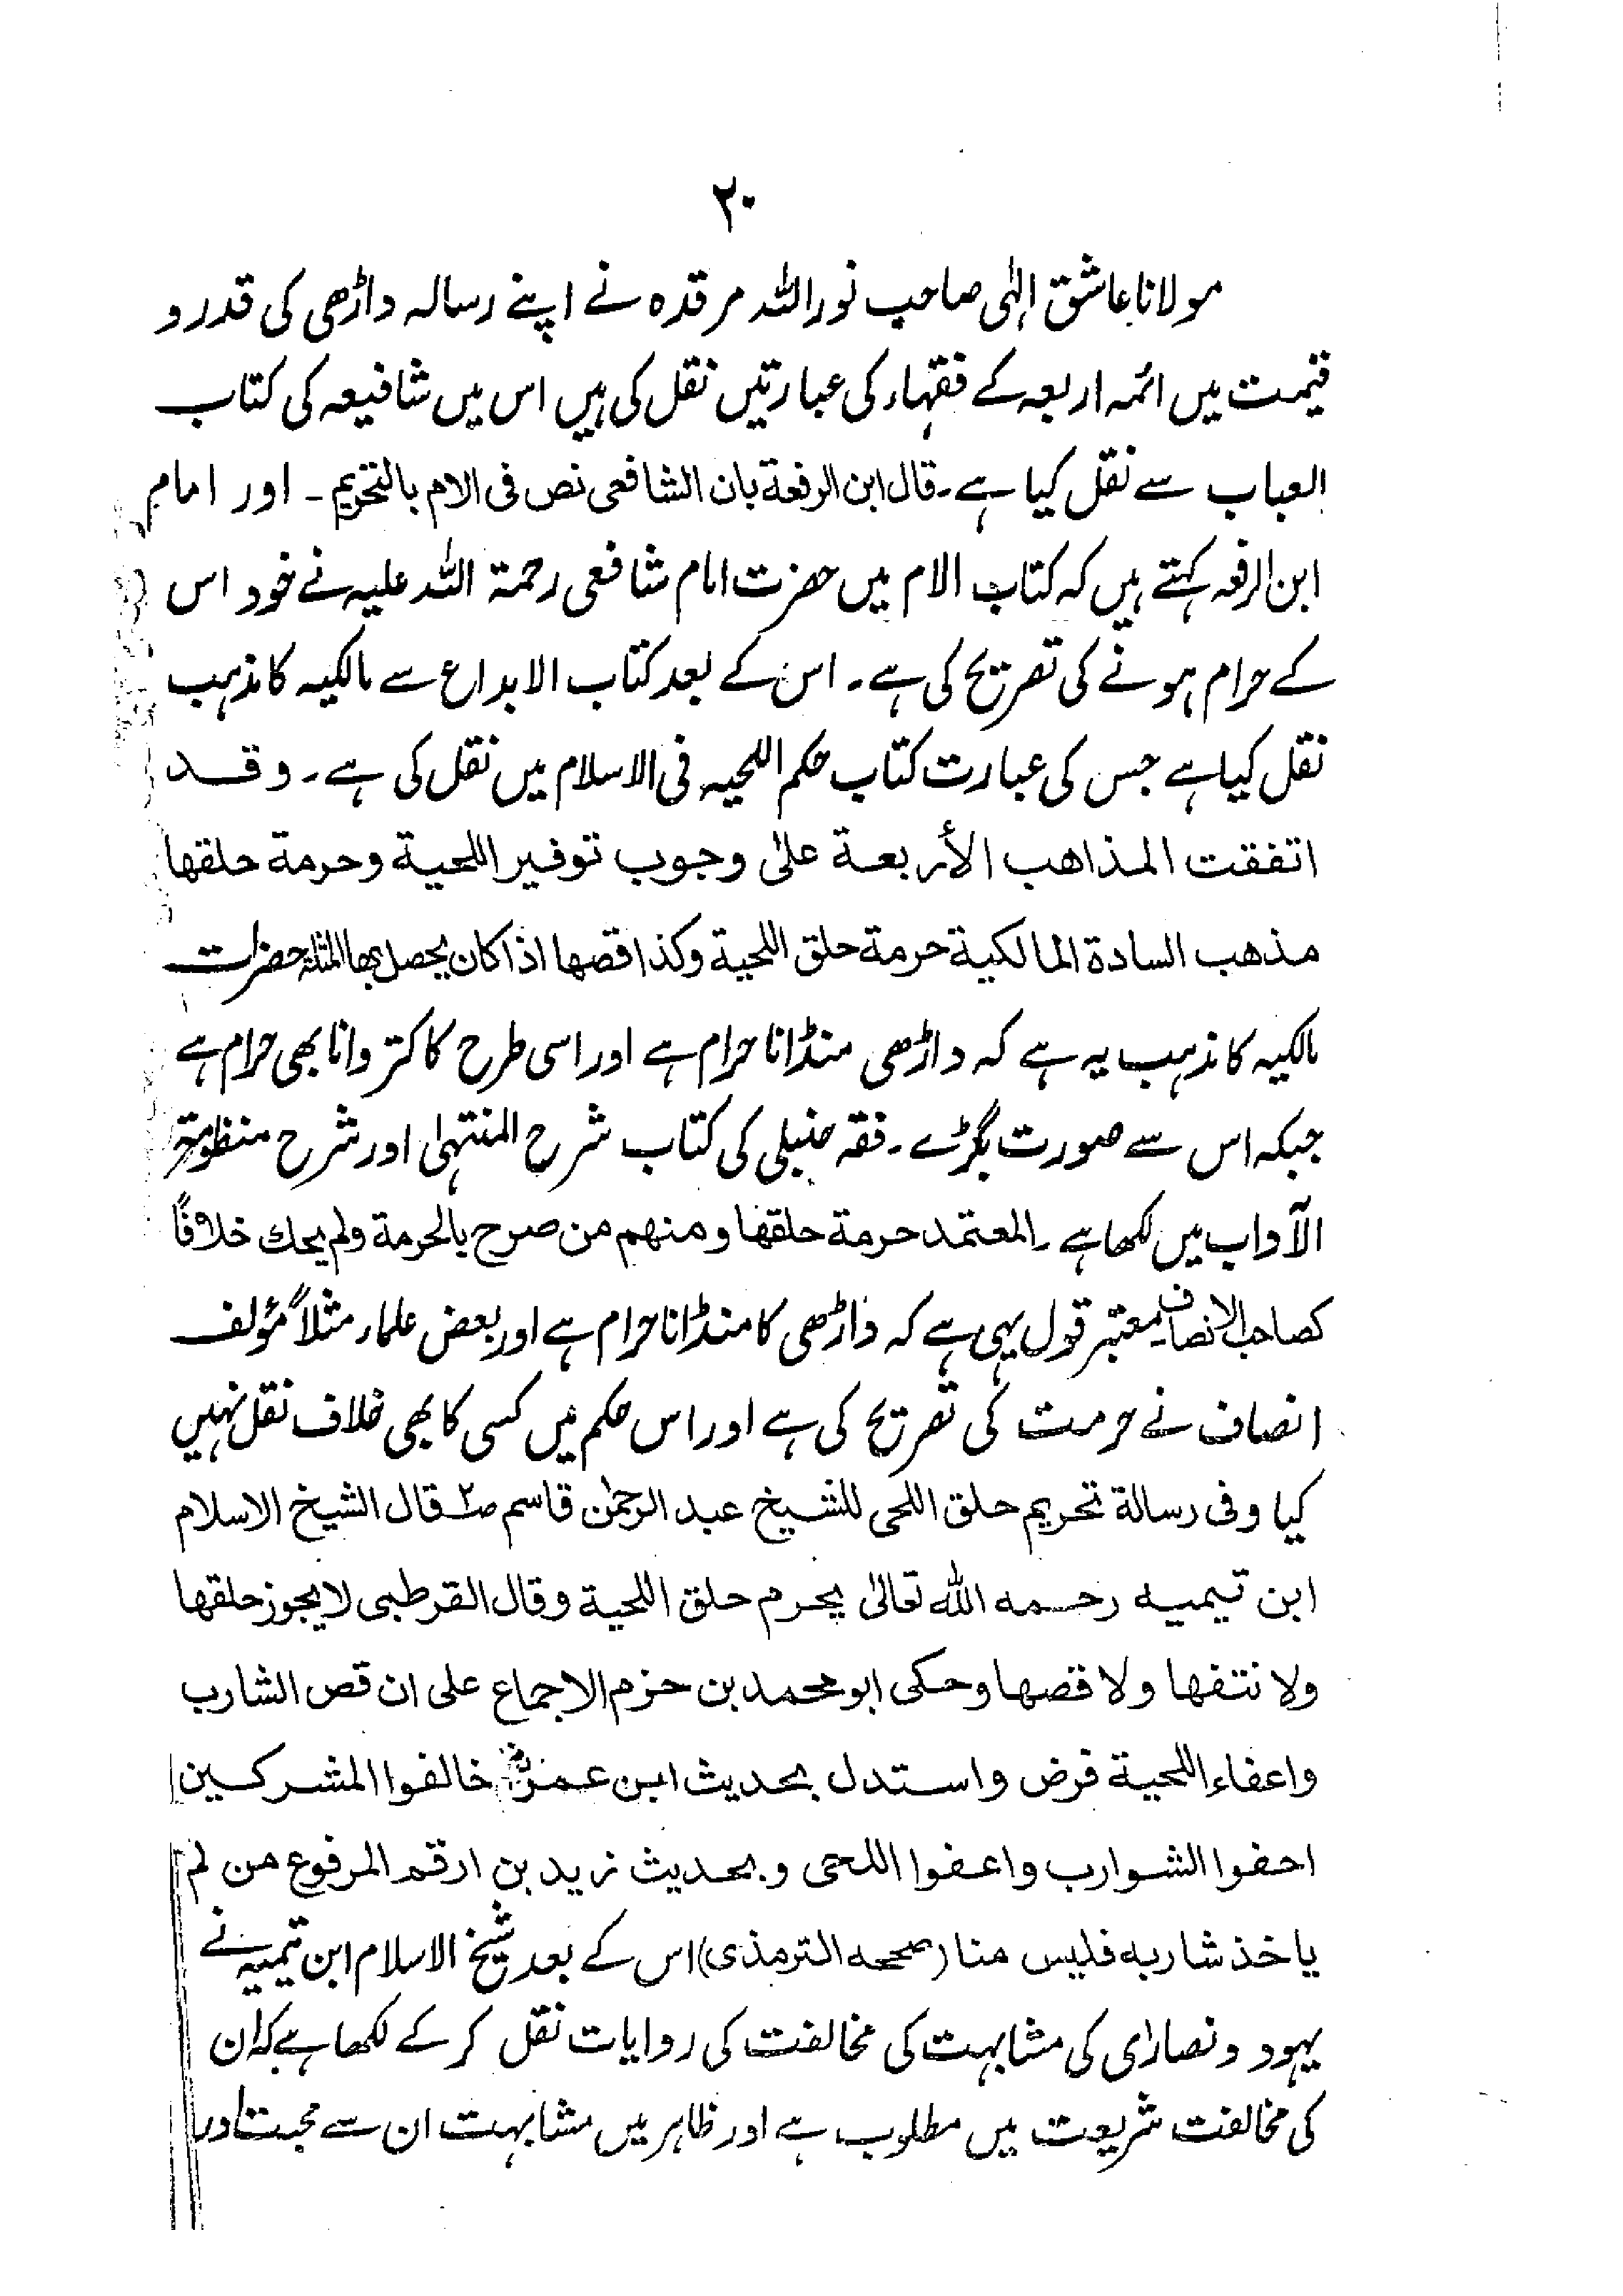 ۲۰
مولانا عاشق الٰہی صاحب نور اللہ مرقدہ نے اپنے رسالہ داڑھی کی قدر و
قیمت میں ائمہ اربعہ کے فقہاء کی عبارتیں نقل کی ہیں اس میں شافیعہ کی کتاب
العباب سے نقل کیا ہے۔ قال ابن الرفعة بان الشافعی نص فی الام بالتحریم۔ اور امام
ابن الرفعہ کہتے ہیں کہ کتاب الام میں حضرت امام شافعی رحمۃ اللہ علیہ نے خود اس
کے حرام ہونے کی تصریح کی ہے۔ اس کے بعد کتاب الابداع سے مالکیہ کا مذہب
نقل کیا ہے جس کی عبارت کتاب حکم اللحیہ فی الاسلام میں نقل کی ہے۔ وقد
اتفقت المذاهب الأربعة علیٰ وجوب توفیر اللحیة وحرمة حلقها
مذهب السادة المالکیة حرمة حلق اللحیة وکذا قصها اذا کان یحصل بها المثلة حضرات
مالکیہ کا مذہب یہ ہے کہ داڑھی منڈانا حرام ہے اور اسی طرح کا کتروانا بھی حرام ہے
جبکہ اس سے صورت بگڑے۔ فقہ حنبلی کی کتاب شرح المنتہیٰ اور شرح منظومۃ
الآداب میں لکھا ہے۔ المعتمد حرمة حلقها ومنهم من صرح بالحرمة ولم یحك خلافاً
کصاحب الانصاف معتبر قول یہی ہے کہ داڑھی کا منڈانا حرام ہے اور بعض علماء مثلاً مؤلف
انصاف نے حرمت کی تصریح کی ہے اور اس حکم میں کسی کا بھی خلاف نقل نہیں
کیا وفی رسالة تحریم حلق اللحی للشیخ عبد الرحمٰن قاسم ص۲ قال الشیخ الاسلام
ابن تیمیه رحمه الله تعالیٰ یحرم حلق اللحیة وقال القرطبی لا یجوز حلقها
ولا نتفها ولا قصها وحکی ابو محمد بن حزم الاجماع علی ان قص الشارب
واعفاء اللحیة فرض واستدل بحدیث ابن عمرؓ خالفوا المشرکین
احفوا الشوارب واعفوا اللحی وبحدیث زید بن ارقم المرفوع من لم
یاخذ شاربه فلیس منا (صححه الترمذی) اس کے بعد شیخ الاسلام ابن تیمیہ نے
یہود و نصاریٰ کی مشابہت کی مخالفت کی روایات نقل کر کے لکھا ہے کہ ان
کی مخالفت شریعت میں مطلوب ہے اور ظاہر میں مشابہت ان سے محبت اور